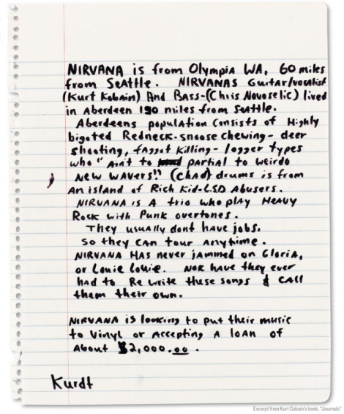 NIRVANA is from Olympia WA, 60 miles
from Seattle. NIRVANAS Guitar/vocalist
(Kurt Kobain) And Bass-(Chris Novoselic) lived
in Aberdeen 150 miles from Seattle.
Aberdeens population consists of Highly
bigoted Redneck-snoose chewing-deer
shooting, faggot killing-logger types
who "Ain't to partial to weirdo
New Wavers!" (chad) drums is from
an island of Rich Kid-LSD Abusers.
NIRVANA is A trio who play HEAVY
Rock with Punk overtones.
They usually dont have jobs.
So they can tour Anytime.
NIRVANA Has never jammed on Gloria,
or Louie Louie. Nor have they ever
had to Re write these songs & CALL
them their own.
NIRVANA is looking to put their music
to Vinyl or Accepting A loan of
About $2,000.00.
Kurdt
Excerpt from Kurt Cobain's book, "Journals"